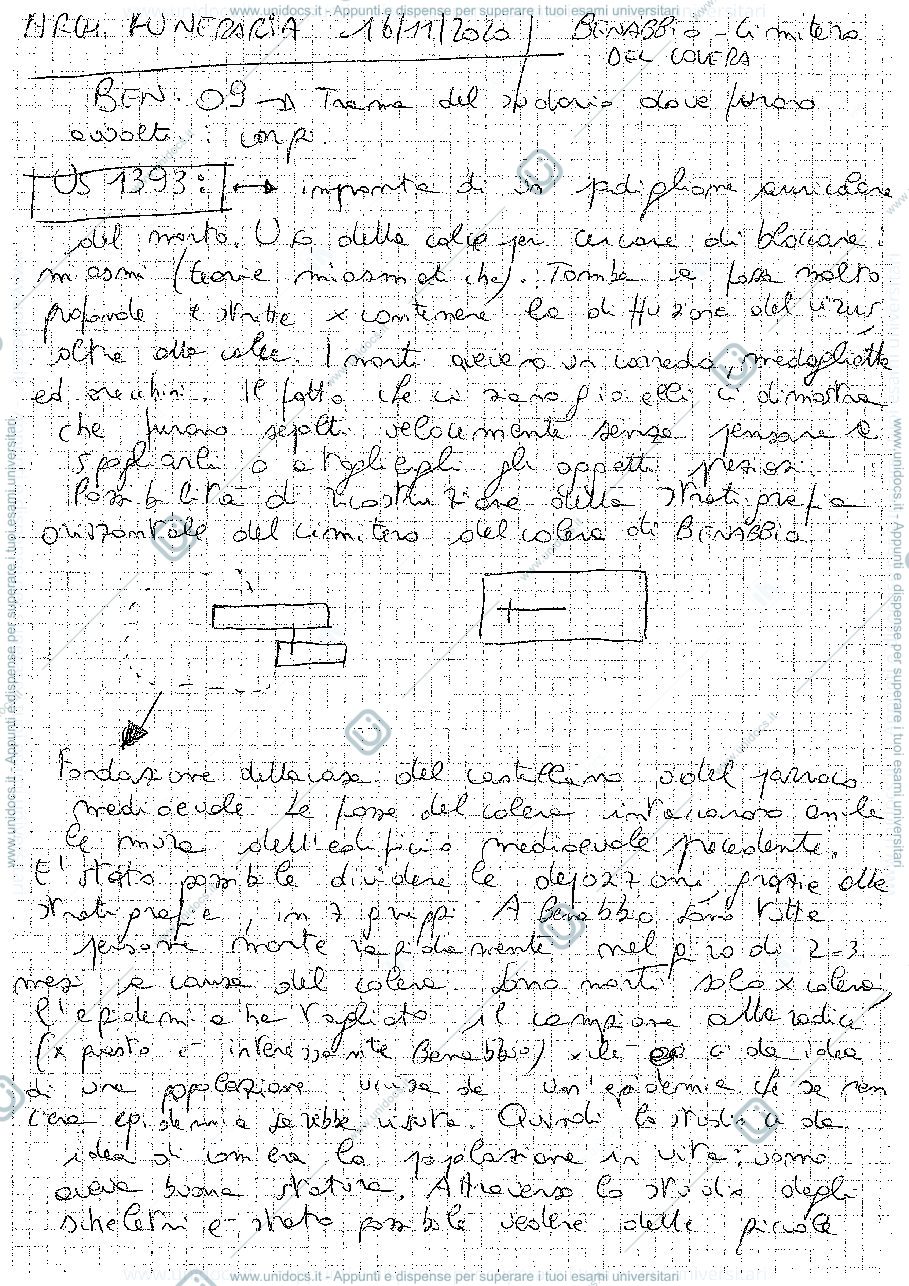 ARCH. FUNERARIA 16/11/2020 / BENABBIO - Cimitero
DEL COLERA
BEN. 09 → Trama del sudario dove furono
avvolti i corpi.
US 1393: → impronta di un padiglione auricolare
del morto. Uso della calce per cercare di bloccare i
miasmi (teorie miasmatiche). Tombe a fossa molto
profonde e strette x contenere la diffusione del virus
oltre alla calce. I morti avevano un corredo, medagliette
ed orecchini. Il fatto che ci siano gioielli ci dimostra
che furono sepolti velocemente senza pensare a
spogliarli o a togliergli gli oggetti preziosi.
Possibilità di ricostruzione della stratigrafia
orizzontale del cimitero del colera di BENABBIO
Fondazione della casa del castellano o del parroco
medioevale. Le fosse del colera intaccarono anche
le mura dell'edificio medioevale precedente.
E' stato possibile dividere le deposizioni, grazie alle
stratigrafie, in 7 gruppi. A Benabbio sono tutte
persone morte rapidamente nel giro di 2-3
mesi a causa del colera. Sono morti solo x colera,
l'epidemia ha tagliato il campione alla radice
(x questo è interessante Benabbio) xchè ci da idea
di una popolazione uccisa da un'epidemia che se non
c'era epidemia sarebbe vissuta. Quindi lo studio ci da
idea di com'era la popolazione in vita: uomo
aveva buona statura. Attraverso lo studio degli
scheletri è stato possibile vedere delle piccole
www.unidocs.it - Appunti e dispense per superare i tuoi esami universitari